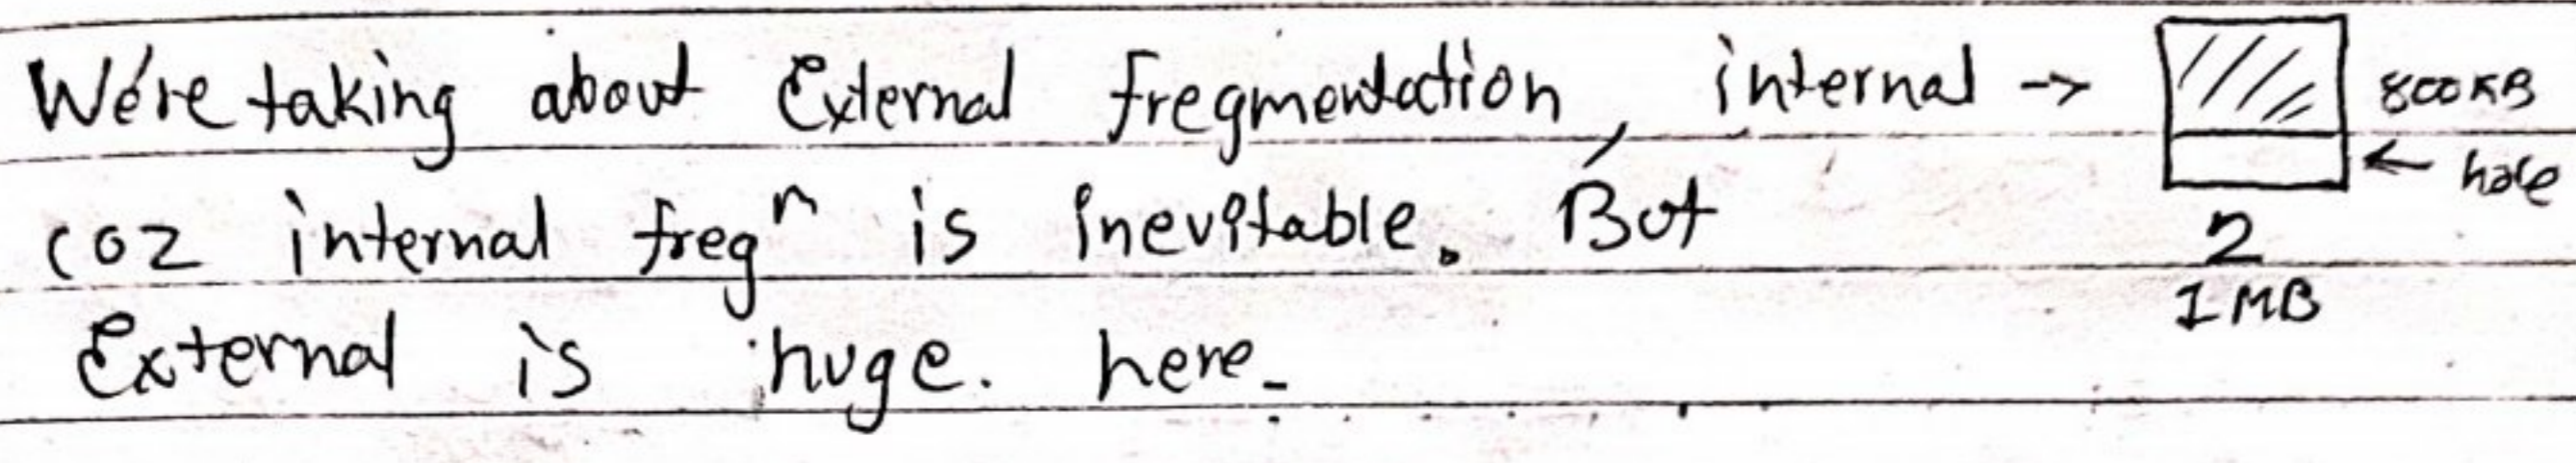 We're taking about External fregmentation, internal →
800KB
← hole
coz internal fregⁿ is inevitable. But
2
1MB
External is huge. here.